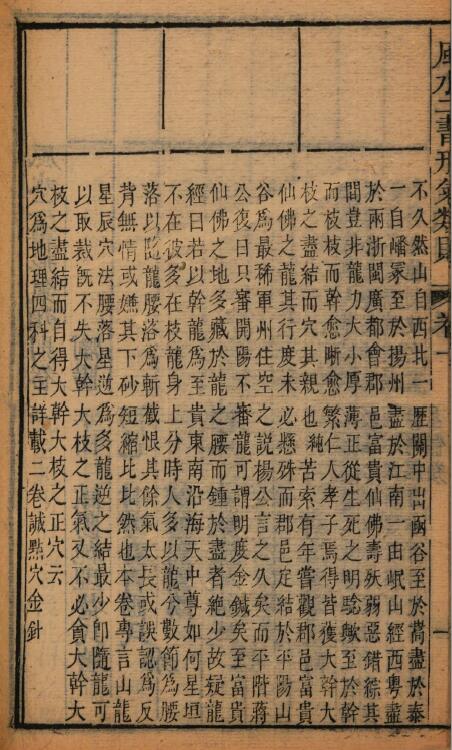 風水二書形氣類則 卷一 一
不久然山自西北一歷關中出函谷至於嵩盡於泰
一自嶓冢至於揚州盡於江南一由岷山經西粤盡
於兩浙閩廣都會郡邑富貴仙佛壽殀弱惡錯綜其
間豈非龍力大小厚薄正從生死之明驗歟至於幹
而枝枝而幹愈晰愈繁仁人孝子焉得皆獲大幹大
枝之盡結而穴其親也純苦索有年嘗觀郡邑富貴
仙佛之龍其行度未必懸殊而郡邑定結於平陽山
谷爲最稀軍州住空之說楊公言之久矣而平階蔣
公復日只審開陽不審龍可謂明度金鍼矣至富貴
仙佛之地多藏於龍之腰而鍾於盡者絶少故疑龍
經曰若以幹龍爲至貴東南沿海天中尊如何星垣
不在彼多在枝龍身上分時人多以龍兮數節爲腰
落以隨龍腰落爲斬截恨其餘氣太長或誤認爲反
背無情或嫌其下砂短縮比比然也本卷專言山龍
星辰穴法腰落星遁爲多龍逆之結最少卽隨龍可
以取裁旣不失大幹大枝之正氣又不必貪大幹大
枝之盡結而自得大幹大枝之正穴云
穴爲地理四科之主詳載二卷誠點穴金針